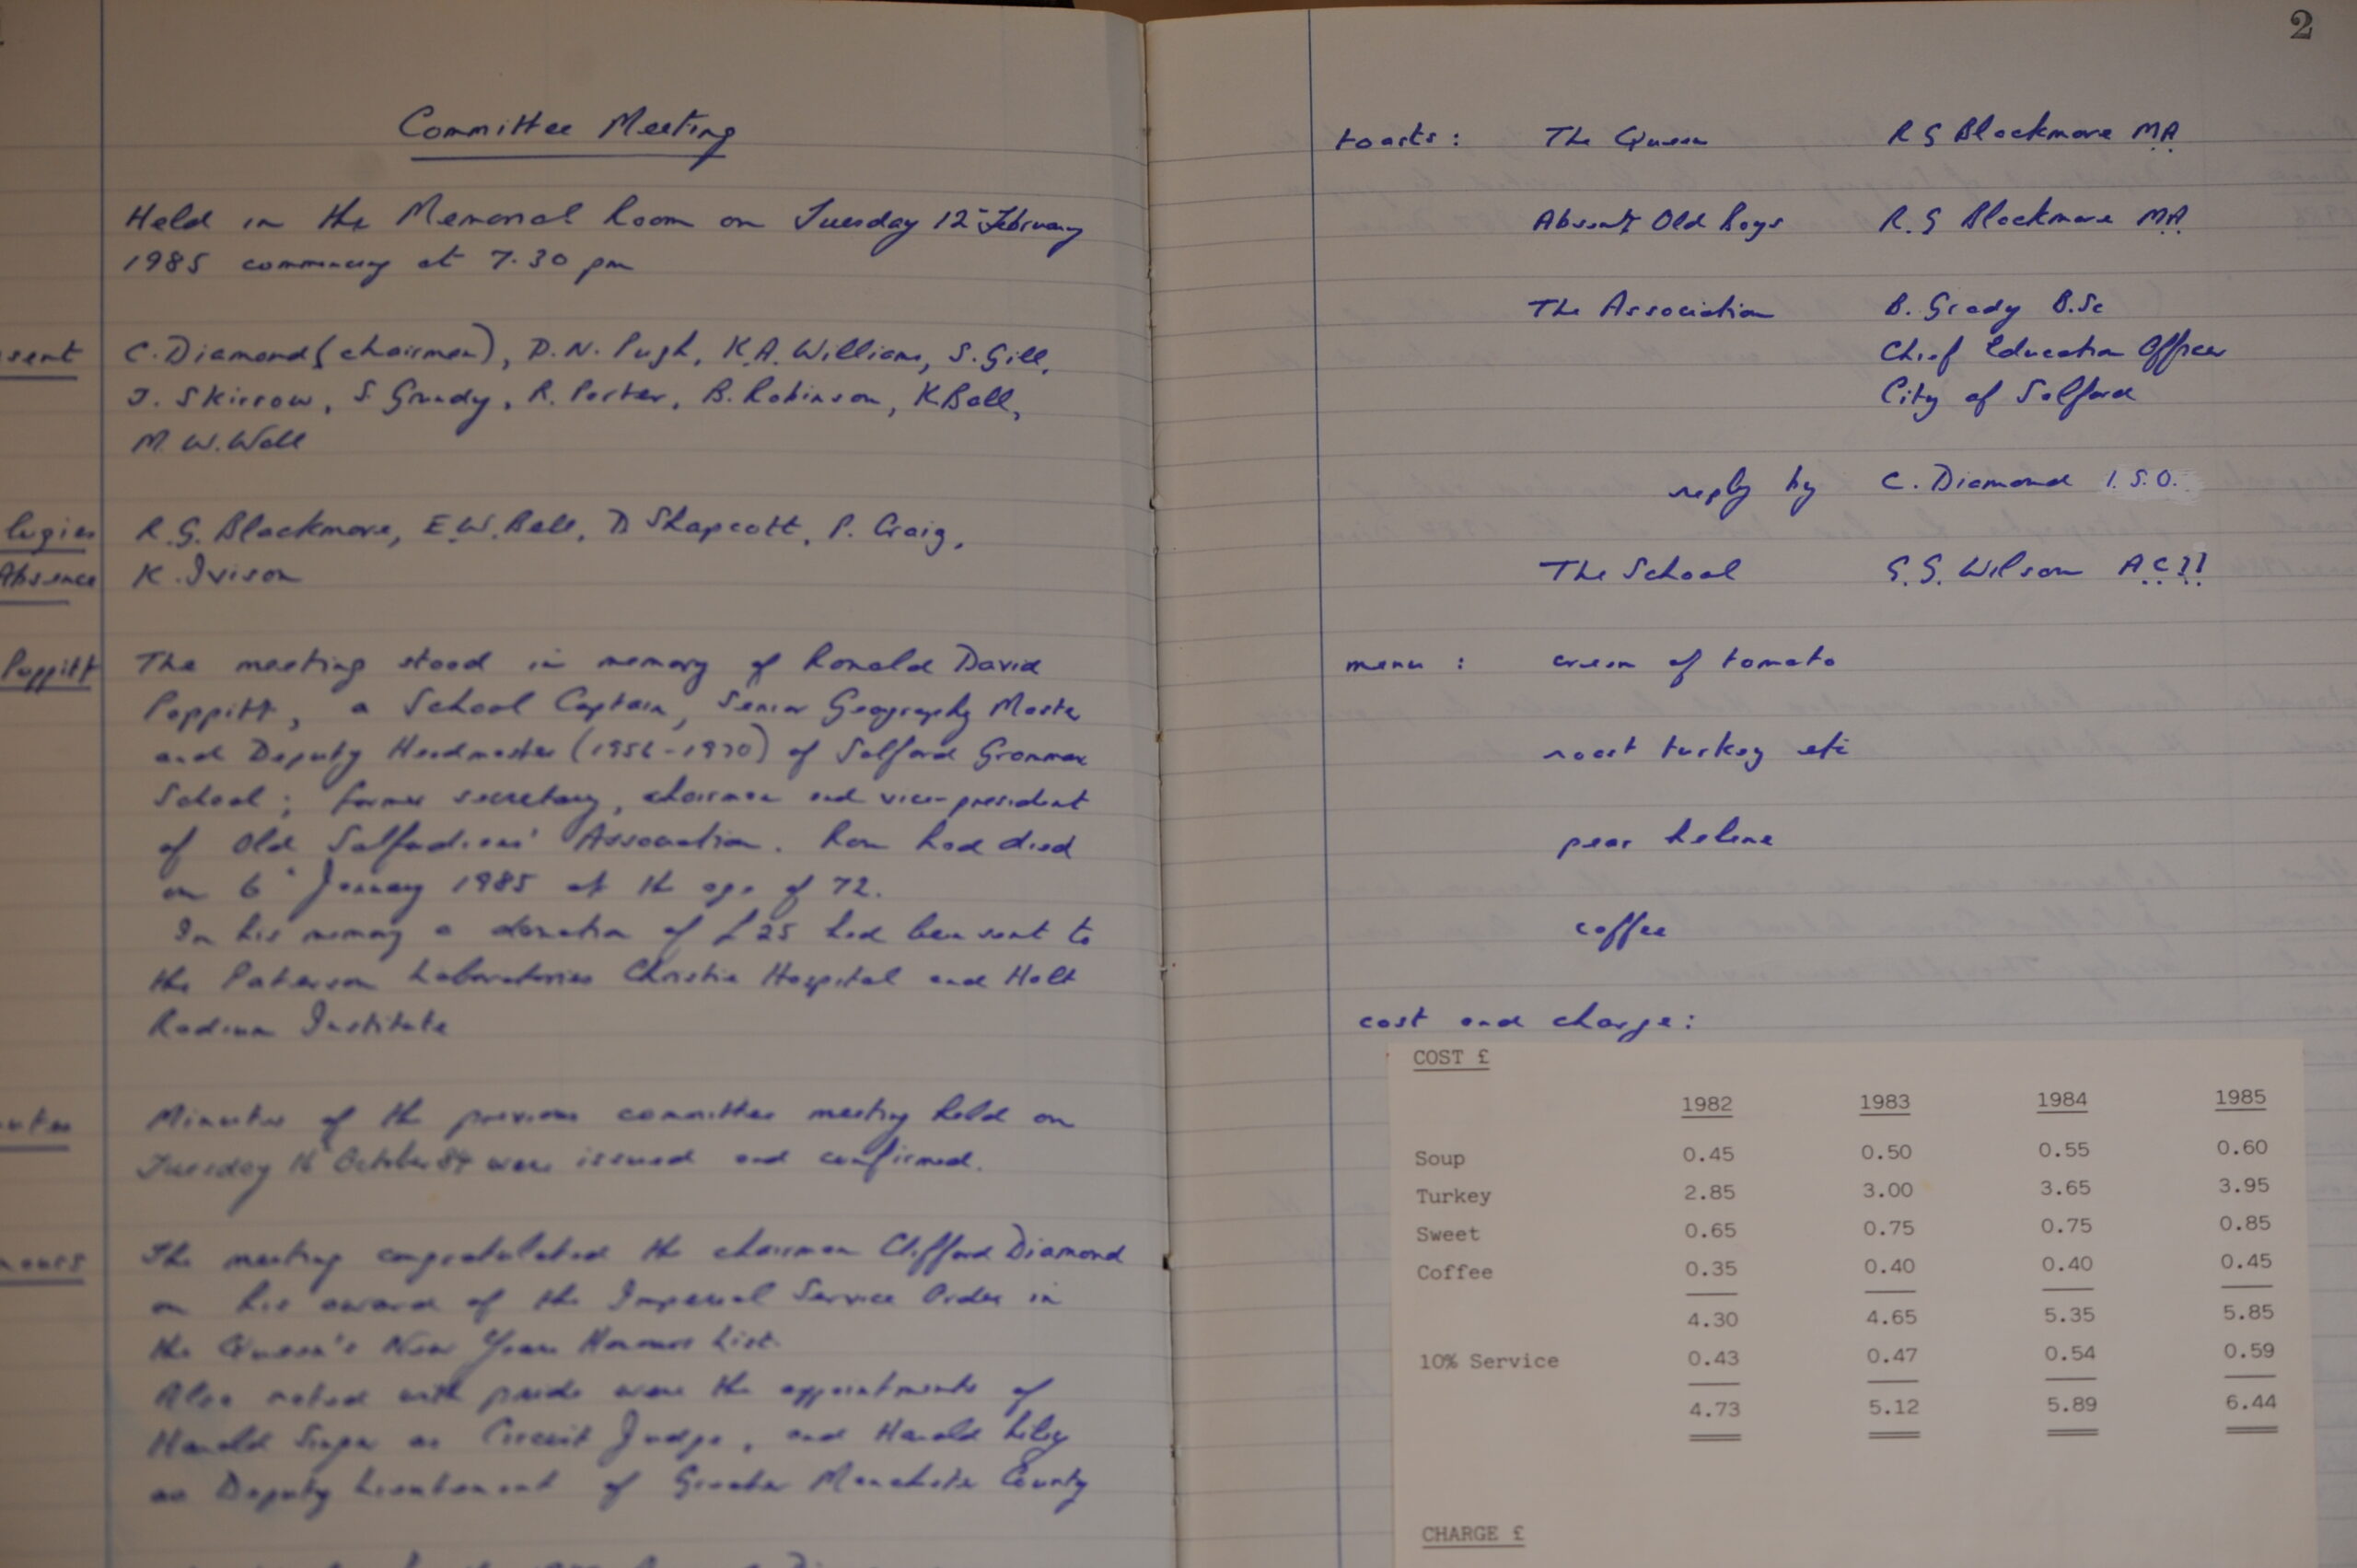 Committee Meeting
Held in the Memorial Room on Tuesday 12th February
1985 commencing at 7.30 pm
sent
C. Diamond (chairman), D.N. Pugh, K.A. Williams, S. Gill,
J. Skirrow, S Grundy, R. Porter, B. Robinson, K Ball,
M.W. Wall
logies
R.G. Blackmore, E.W. Bell, D Shapcott, P. Craig,
Absence
K. Ivison
Poppitt
The meeting stood in memory of Ronald David
Poppitt, a School Captain, Senior Geography Master
and Deputy Headmaster (1956-1970) of Salford Grammar
School; former secretary, chairman and vice-president
of Old Salfordians' Association. Ron had died
on 6th January 1985 at the age of 72.
In his memory a donation of £25 had been sent to
the Paterson Laboratories Christie Hospital and Holt
Radium Institute
nutes
Minutes of the previous committee meeting held on
Tuesday 16 October 84 were issued and confirmed.
nours
The meeting congratulated the chairman Clifford Diamond
on his award of the Imperial Service Order in
the Queen's New Years Honours List.
Also noted with pride were the appointments of
Harold Singer as Circuit Judge, and Harold Liley
as Deputy Lieutenant of Greater Manchester County
2
toasts: The Queen R G Blackmore MA
Absent Old Boys R.G Blackmore MA
The Association B. Grady B.Sc
Chief Education Officer
City of Salford
reply by C. Diamond I.S.O.
The School G.G. Wilson ACII
menu: cream of tomato
roast turkey etc
pear helene
coffee
cost and charge:
COST £
1982 1983 1984 1985
Soup 0.45 0.50 0.55 0.60
Turkey 2.85 3.00 3.65 3.95
Sweet 0.65 0.75 0.75 0.85
Coffee 0.35 0.40 0.40 0.45
4.30 4.65 5.35 5.85
10% Service 0.43 0.47 0.54 0.59
4.73 5.12 5.89 6.44
CHARGE £